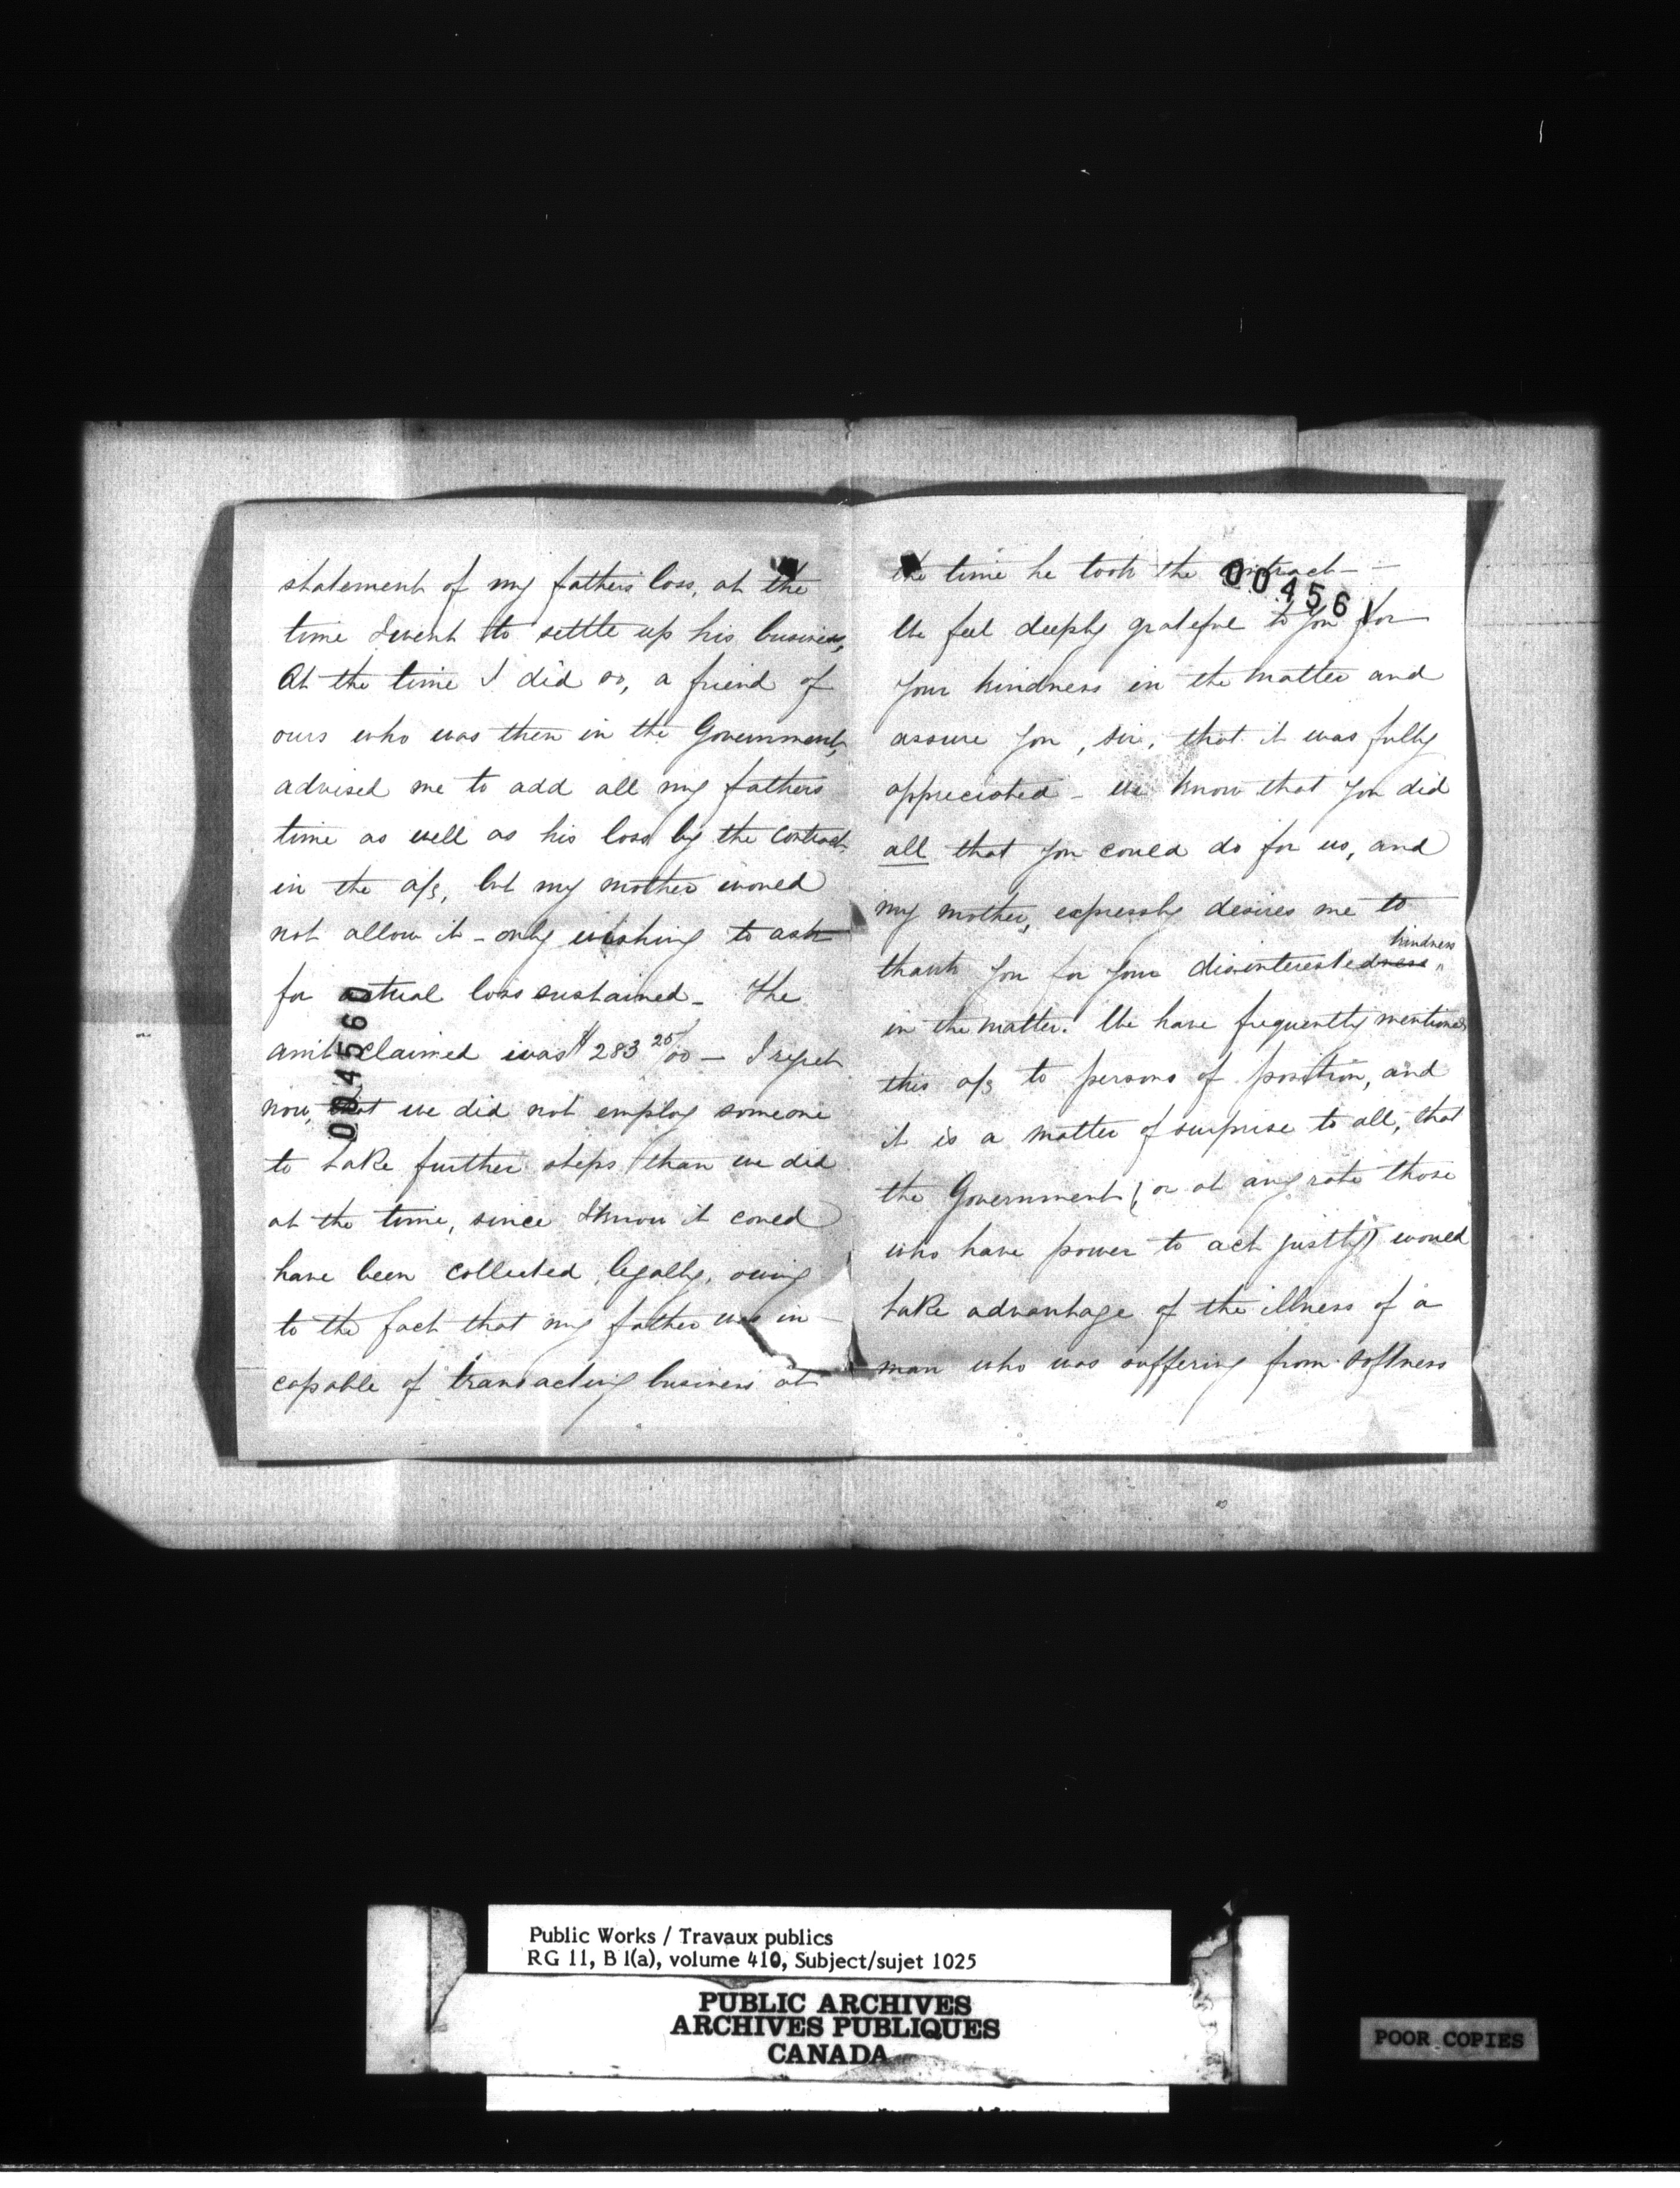 statement of my fathers loss, at the
time I went to settle up his business,
At the time I did so, a friend of
ours who was then in the Government,
advised me to add all my fathers
time as well as his loss by the contract
in the a/c, but my mother would
not allow it - only wishing to ask
for actual loss sustained - The
amt claimed was $283 20/00 - I regret
now, that we did not employ someone
to take further steps than we did
at the time, since I know it could
have been collected legally, owing
to the fact that my father was in-
capable of transacting business at
004560
the time he took the contract -
004561
We feel deeply grateful to you for
your kindness in the matter and
assure you, sir, that it was fully
appreciated - We know that you did
all that you could do for us, and
my mother, expressly desires me to
thank you for your disinterestedness kindness
in the matter. We have frequently mentioned
this a/c to persons of position, and
it is a matter of surprise to all, that
the Government (or at any rate those
who have power to act justly) would
take advantage of the illness of a
man who was suffering from softness
Public Works / Travaux publics
RG 11, B 1(a), volume 410, Subject/sujet 1025
PUBLIC ARCHIVES
ARCHIVES PUBLIQUES
CANADA
POOR COPIES